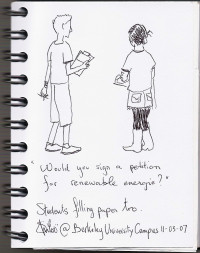 "Would you sign a petition
for renewable energie?"
Students filling paper too.
@ Berkeley University Campus 11-05-07